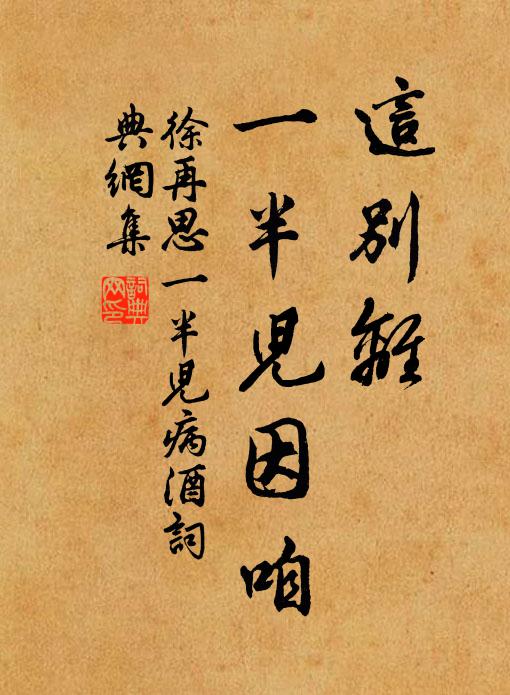 這別離
一半兒因咱
徐再思一半兒病酒詞
典網集
詞典
网印